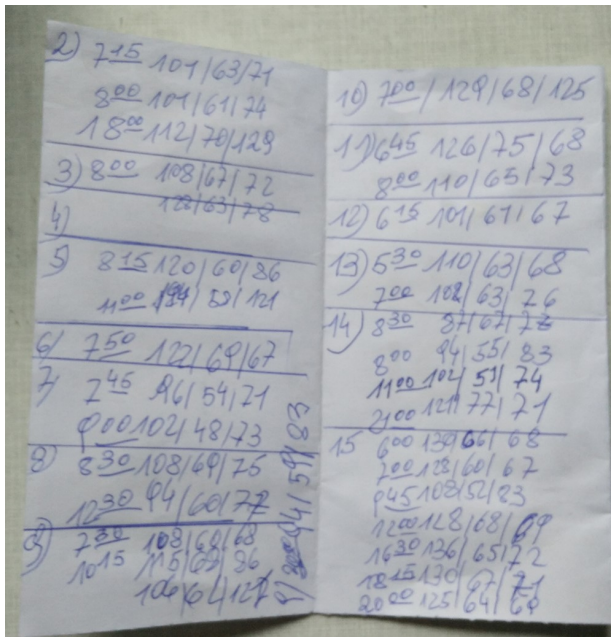 2) 7 15 101/63/71
8 00 101/61/74
18 00 112/70/129
3) 8 00 108/67/72
128/63/78
4)
5) 8 15 120/60/86
11 00 /52/121
6) 7 50 122/69/67
7) 7 45 96/54/71
9 00 102/48/73
8) 8 30 108/69/75
12 30 94/60/77
9) 7 30 108/69/68
10 15 115/69/86
106/62/127
94/59/83
10) 7 00/129/68/125
11) 6 45 126/75/68
8 00 110/65/73
12) 6 15 101/61/67
13) 5 30 110/63/68
7 00 102/63/76
14) 8 30 87/67/78
8 00 94/55/83
11 00 102/51/74
21 00 121/77/71
15 6 00 139/66/68
7 00 128/60/67
9 45 108/52/83
12 00 128/68/69
16 30 136/65/72
18 15 130/67/71
20 00 125/64/69